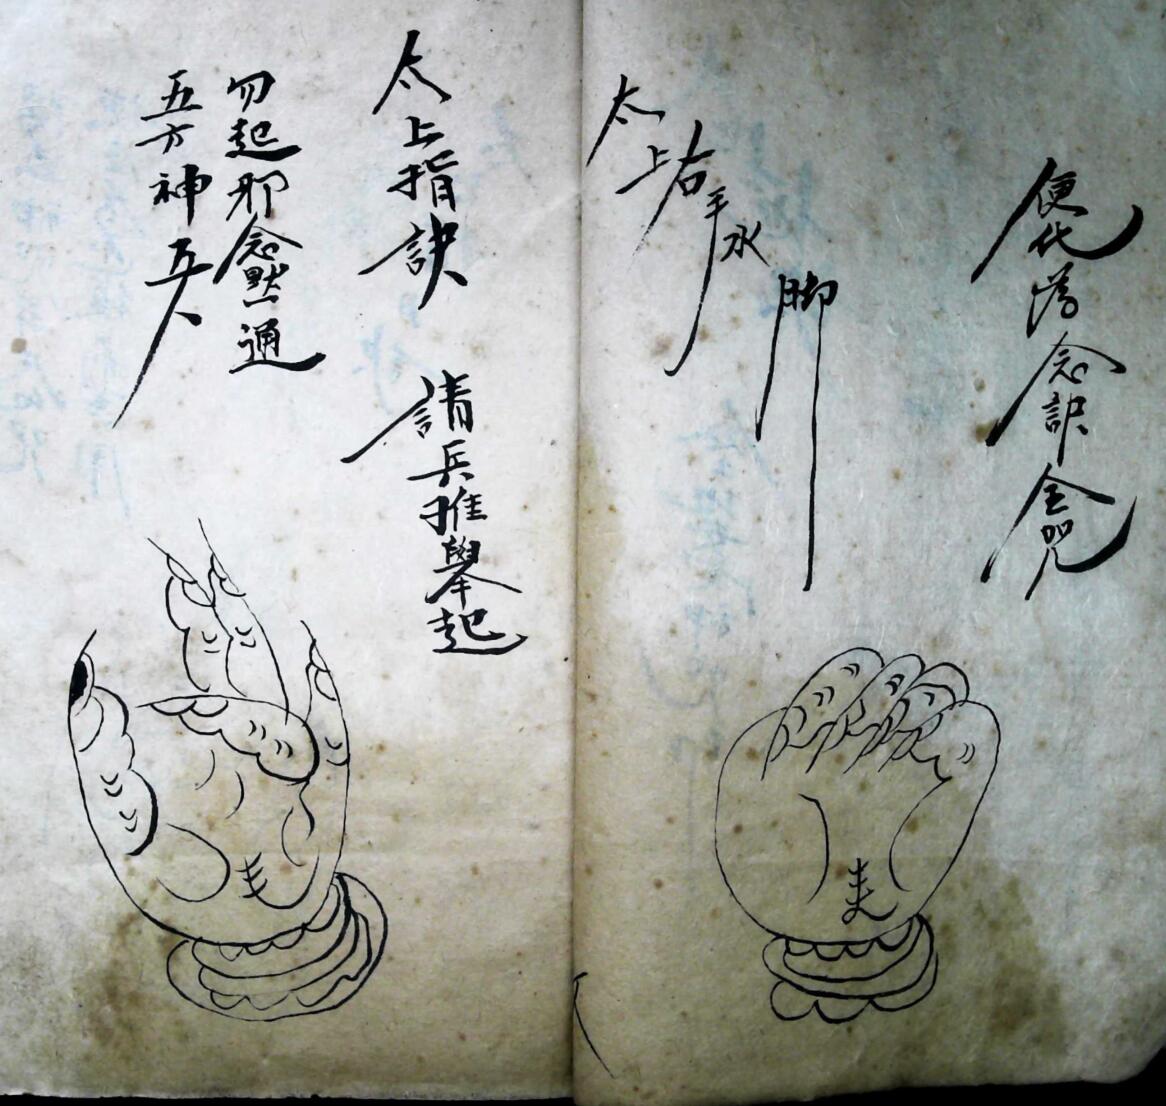 便化為念訣念咒
太上右手水
脚
太上指訣
請兵推舉起
勿起邪念默通
五方神兵